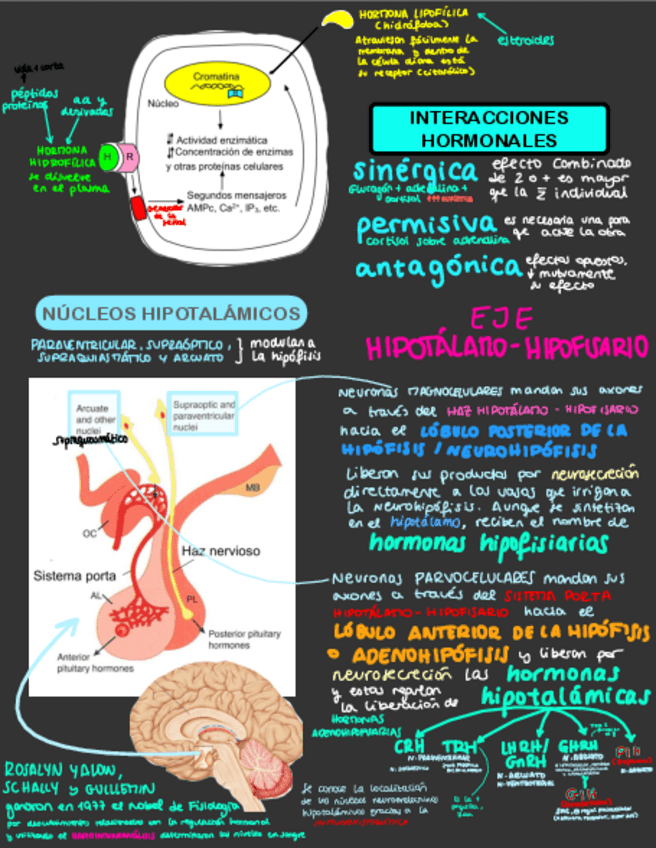 HORMONA LIPOFÍLICA
(hidrófoba)
Atraviesan fácilmente la
membrana y dentro de
la célula diana está
su receptor (citosólico)
esteroides
vida + corta
péptidos
proteínas
aa y
derivados
HORMONA
HIDROFÍLICA
se disuelve
en el plasma
H R
Cromatina
Núcleo
Actividad enzimática
Concentración de enzimas
y otras proteínas celulares
Segundos mensajeros
AMPc, Ca²⁺, IP₃, etc.
señal
INTERACCIONES
HORMONALES
sinérgica
glucagón + adrenalina +
cortisol
efecto combinado
de 2 o + es mayor
que la Σ individual
permisiva
cortisol sobre adrenalina
es necesaria una para
que actúe la otra
antagónica
efectos opuestos,
mutuamente
su efecto
NÚCLEOS HIPOTALÁMICOS
PARAVENTRICULAR, SUPRAÓPTICO,
SUPRAQUIASMÁTICO Y ARCUATO
modulan a
la hipófisis
EJE
HIPOTÁLAMO-HIPOFISARIO
Arcuate
and other
nuclei
supraquiasmático
Supraoptic and
paraventricular
nuclei
MB
OC
Haz nervioso
Sistema porta
AL
PL
Posterior pituitary
hormones
Anterior
pituitary hormones
Neuronas MAGNOCELULARES mandan sus axones
a través del HAZ HIPOTÁLAMO-HIPOFISARIO
hacia el LÓBULO POSTERIOR DE LA
HIPÓFISIS / NEUROHIPÓFISIS
Liberan sus productos por neurosecreción
directamente a los vasos que irrigan a
la neurohipófisis. Aunque se sintetizan
en el hipotálamo, reciben el nombre de
hormonas hipofisiarias
Neuronas PARVOCELULARES mandan sus
axones a través del SISTEMA PORTA
HIPOTÁLAMO-HIPOFISARIO hacia el
LÓBULO ANTERIOR DE LA HIPÓFISIS
o ADENOHIPÓFISIS y liberan por
neurosecreción las hormonas
hipotalámicas
y estas regulan
la liberación de
HORMONAS
ADENOHIPOFISARIAS
CRH
TRH
LHRH/
GnRH
N. ARCUATO
GHRH
N. ARCUATO
PIH
GIH
Se conoce la localización
de los núcleos
hipotalámicos gracias a la
ROSALYN YALOW,
SCHALLY y GUILLEMIN
ganaron en 1977 el Nobel de Fisiología
por descubrimientos relacionados con la regulación hormonal
y utilizando el RADIOINMUNOANÁLISIS determinaron sus niveles en sangre